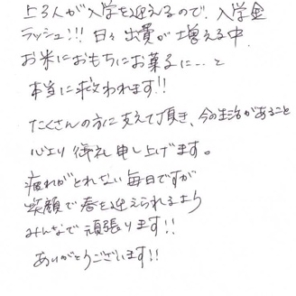 上3人が入学を迎えるので、入学金
ラッシュ!!! 日々出費が増える中
お米におもちにお菓子に…と
本当に救われます!!
たくさんの方に支えて頂き、今の生活があること
心より御礼申し上げます。
疲れがとれない毎日ですが
笑顔で春を迎えられるよう
みんなで頑張ります!!
ありがとうございます!!